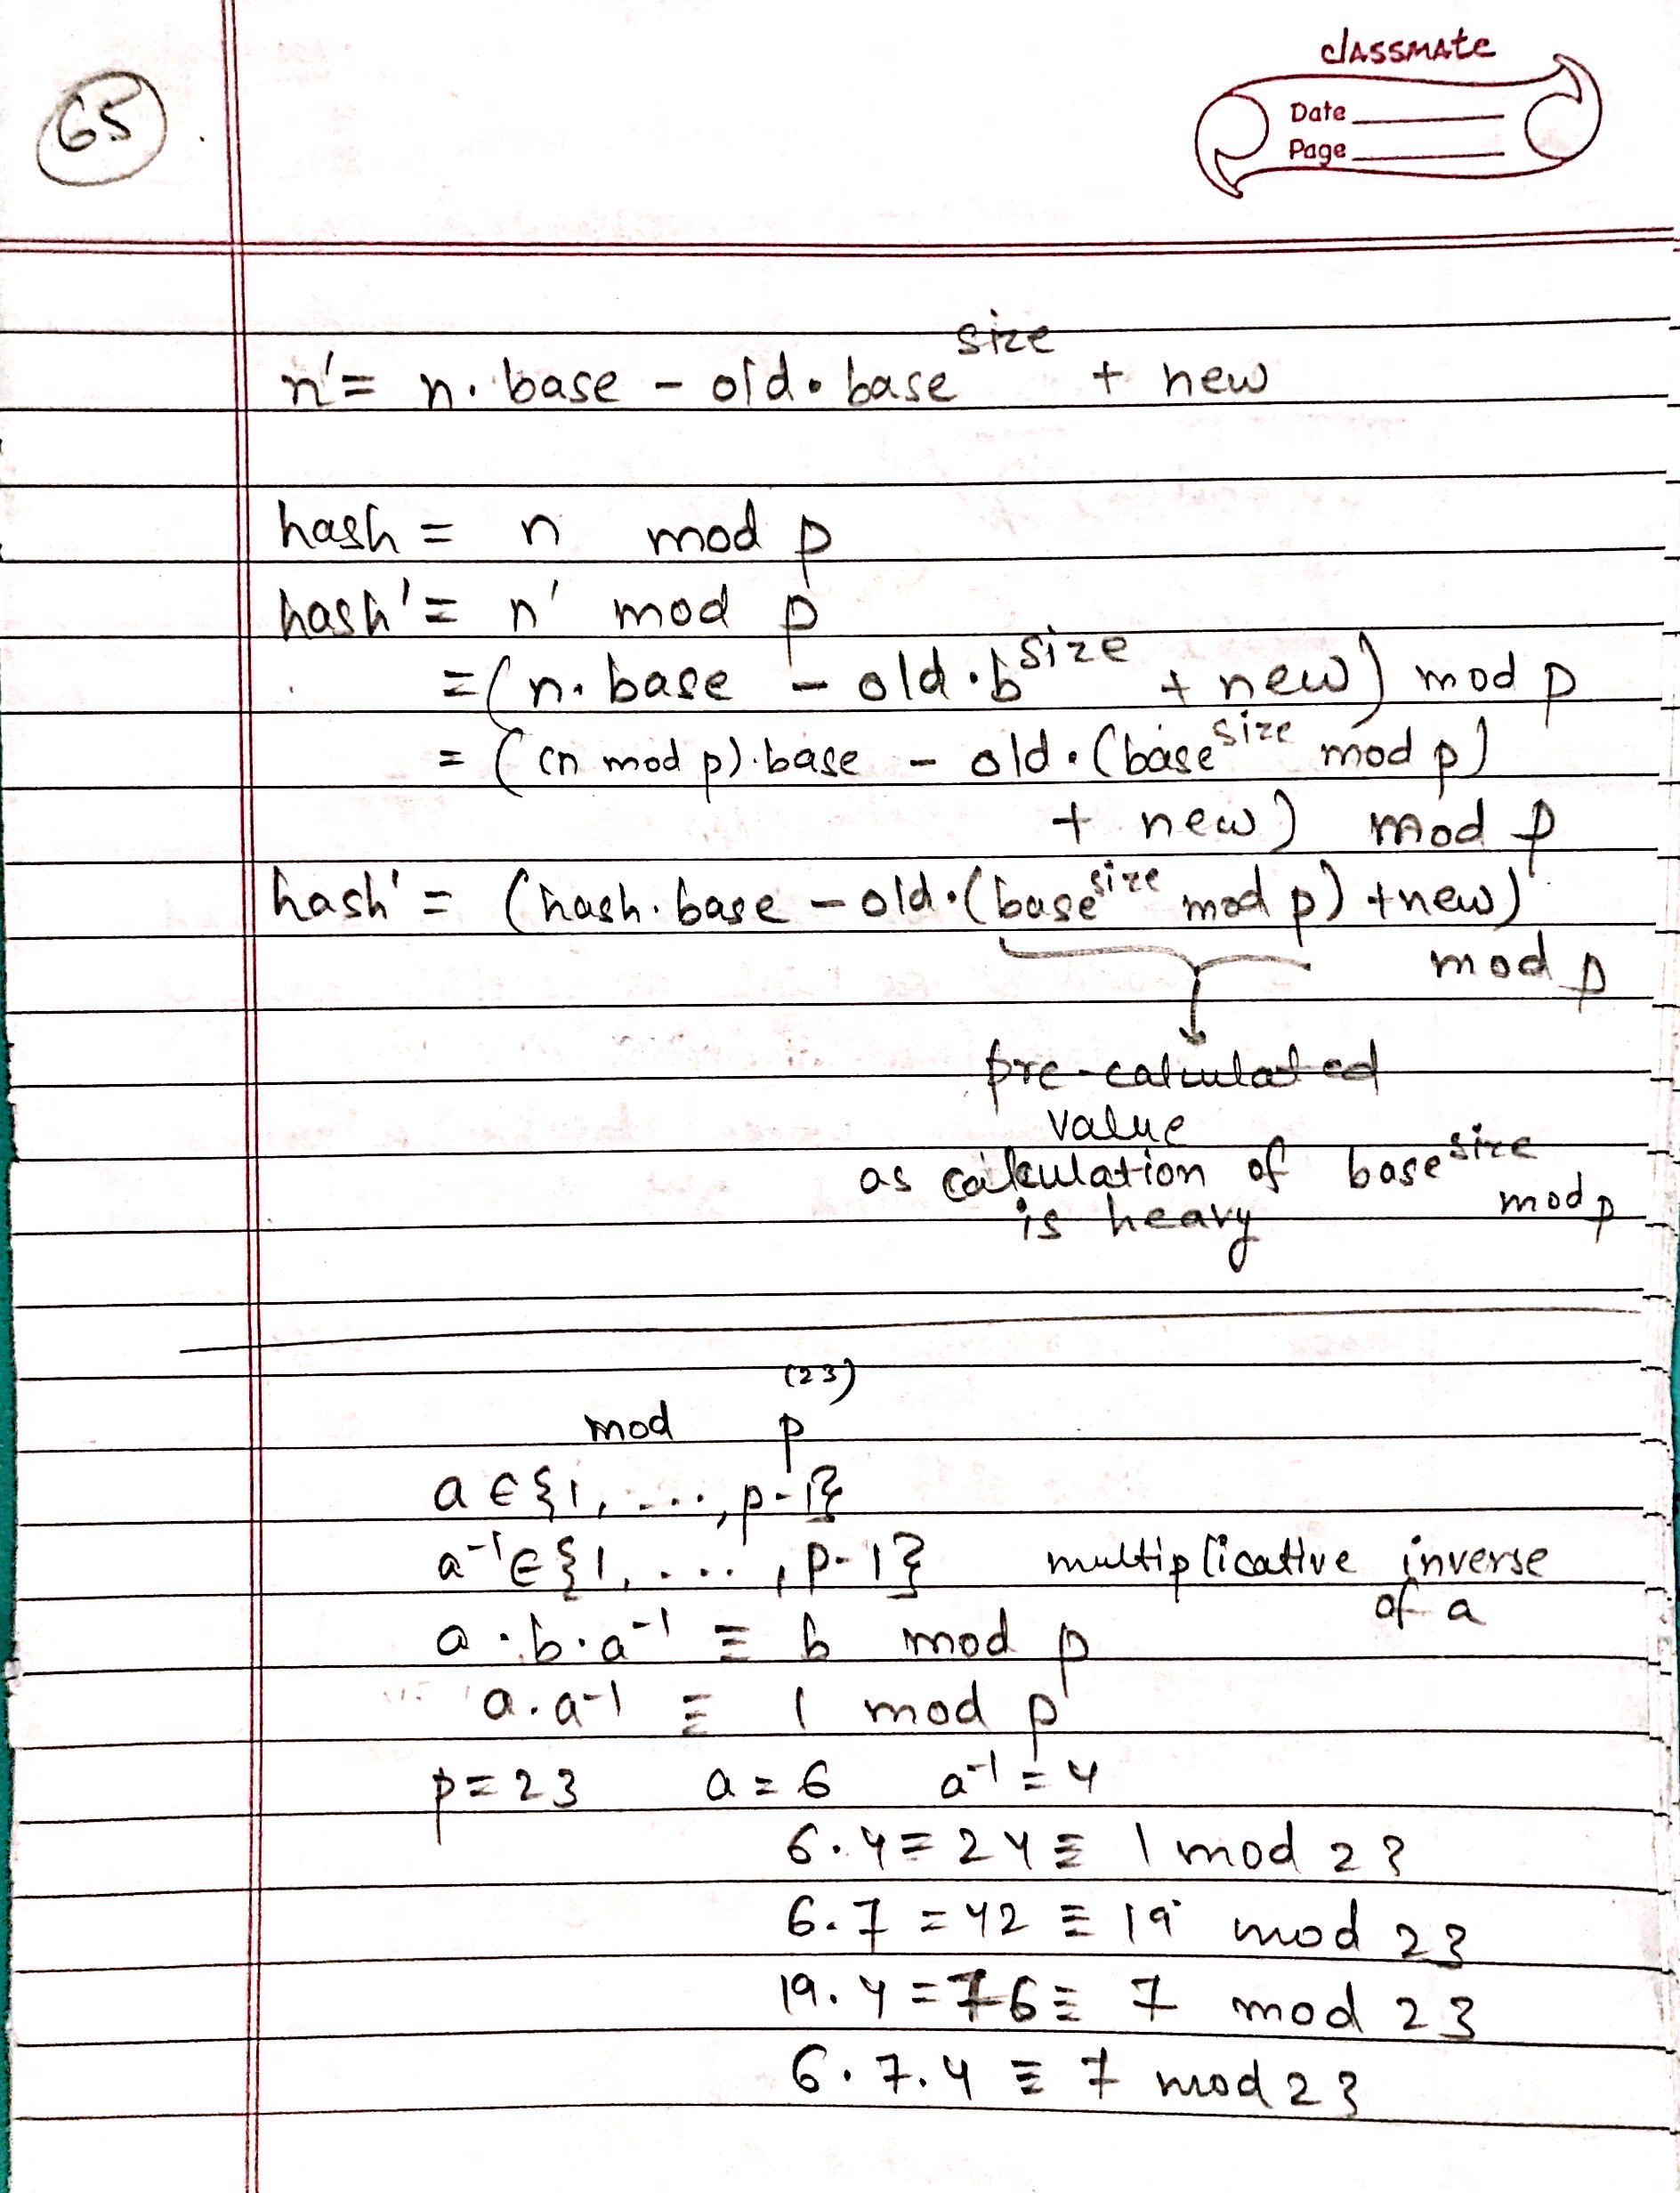 65.
classmate
Date
Page
n' = n. base - old. base^size + new
hash = n mod p
hash' = n' mod p
= (n. base - old. b^size + new) mod p
= ((n mod p). base - old. (base^size mod p)
+ new) mod p
hash' = (hash. base - old. (base^size mod p) + new)
mod p
pre-calculated
value
as calculation of base^size
mod p
is heavy
(23)
mod p
a ∈ {1, ...., p-1}
a^-1 ∈ {1, ...., p-1} multiplicative inverse
of a
a . b . a^-1 ≡ b mod p
a . a^-1 ≡ 1 mod p
p = 23 a = 6 a^-1 = 4
6. 4 = 24 ≡ 1 mod 23
6. 7 = 42 ≡ 19 mod 23
19. 4 = 76 ≡ 7 mod 23
6. 7. 4 ≡ 7 mod 23